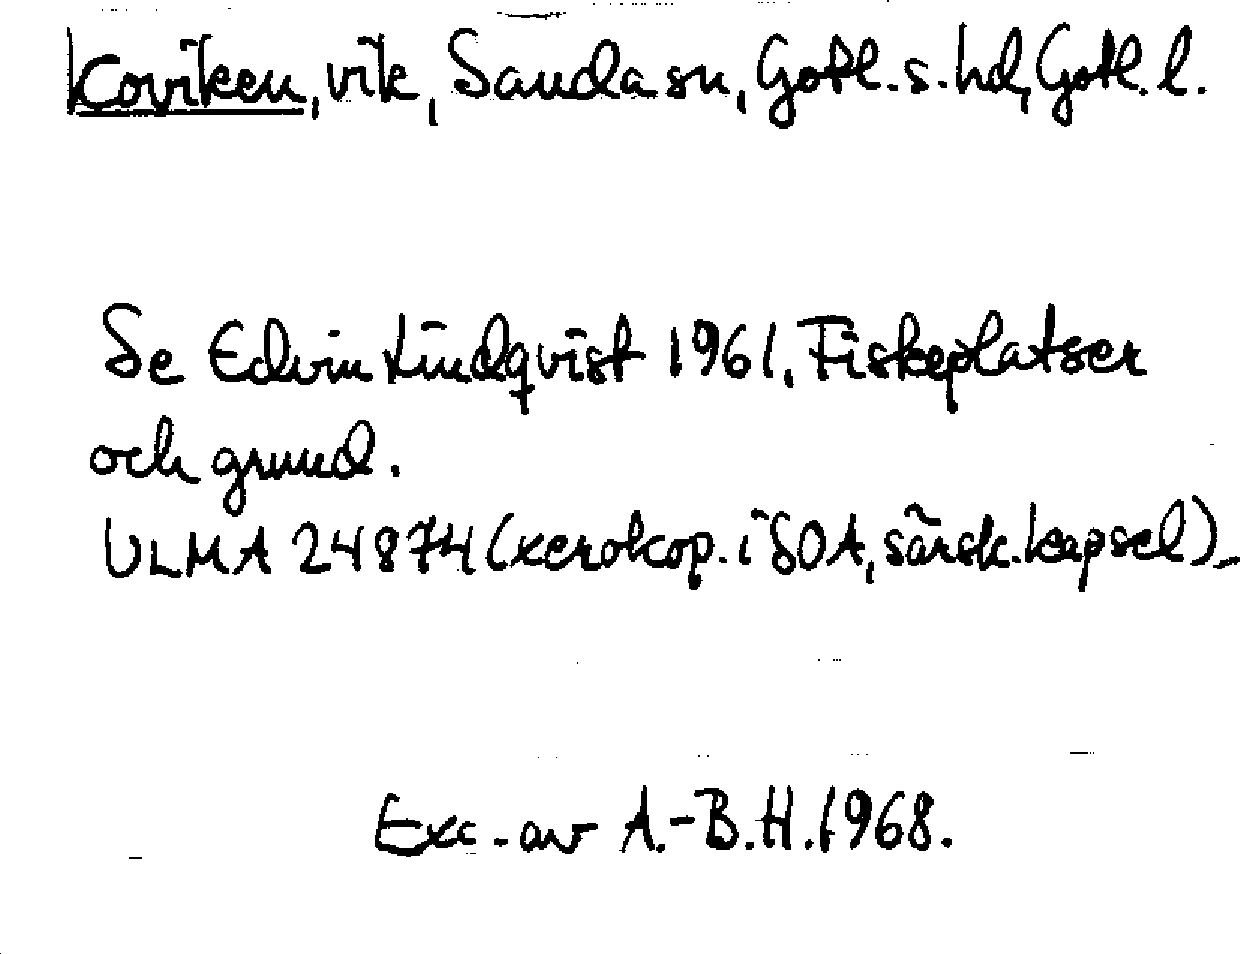 Koviken, vik, Sanda sn, Gotl. s. hd, Gotl. l.
Se Edvin Lindqvist 1961, Fiskeplatser
och grund.
ULMA 24874 (xerokop. i SOA, särsk. kapsel).
Exc. av A.-B.H. 1968.